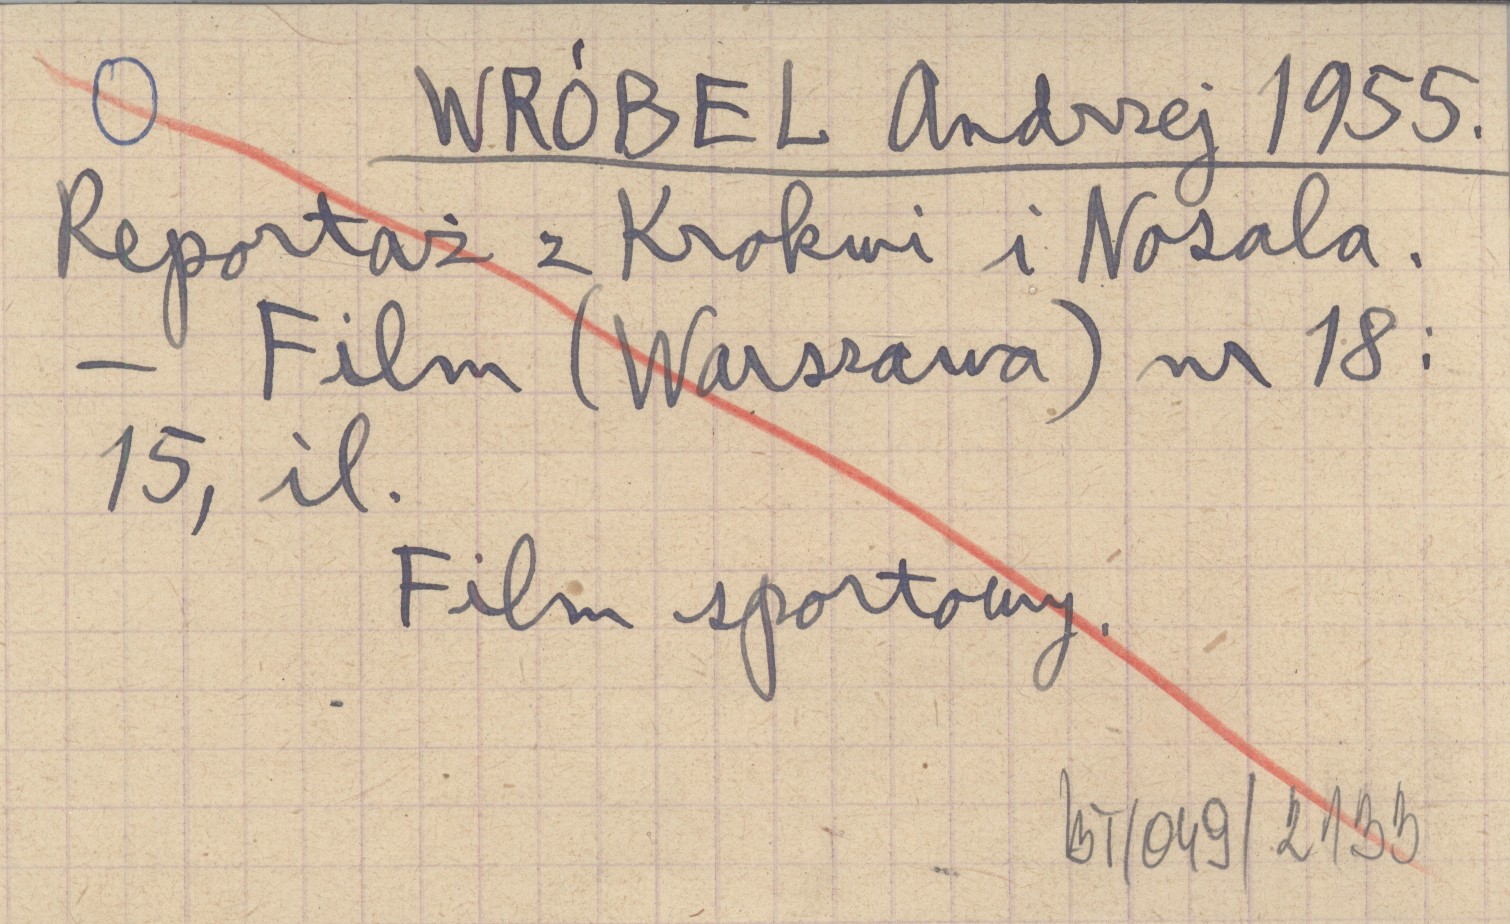 O WRÓBEL Andrzej 1955.
Reportaż z Krokwi i Nosala.
— Film (Warszawa) nr 18:
15, il.
Film sportowy.
BT/049/2133